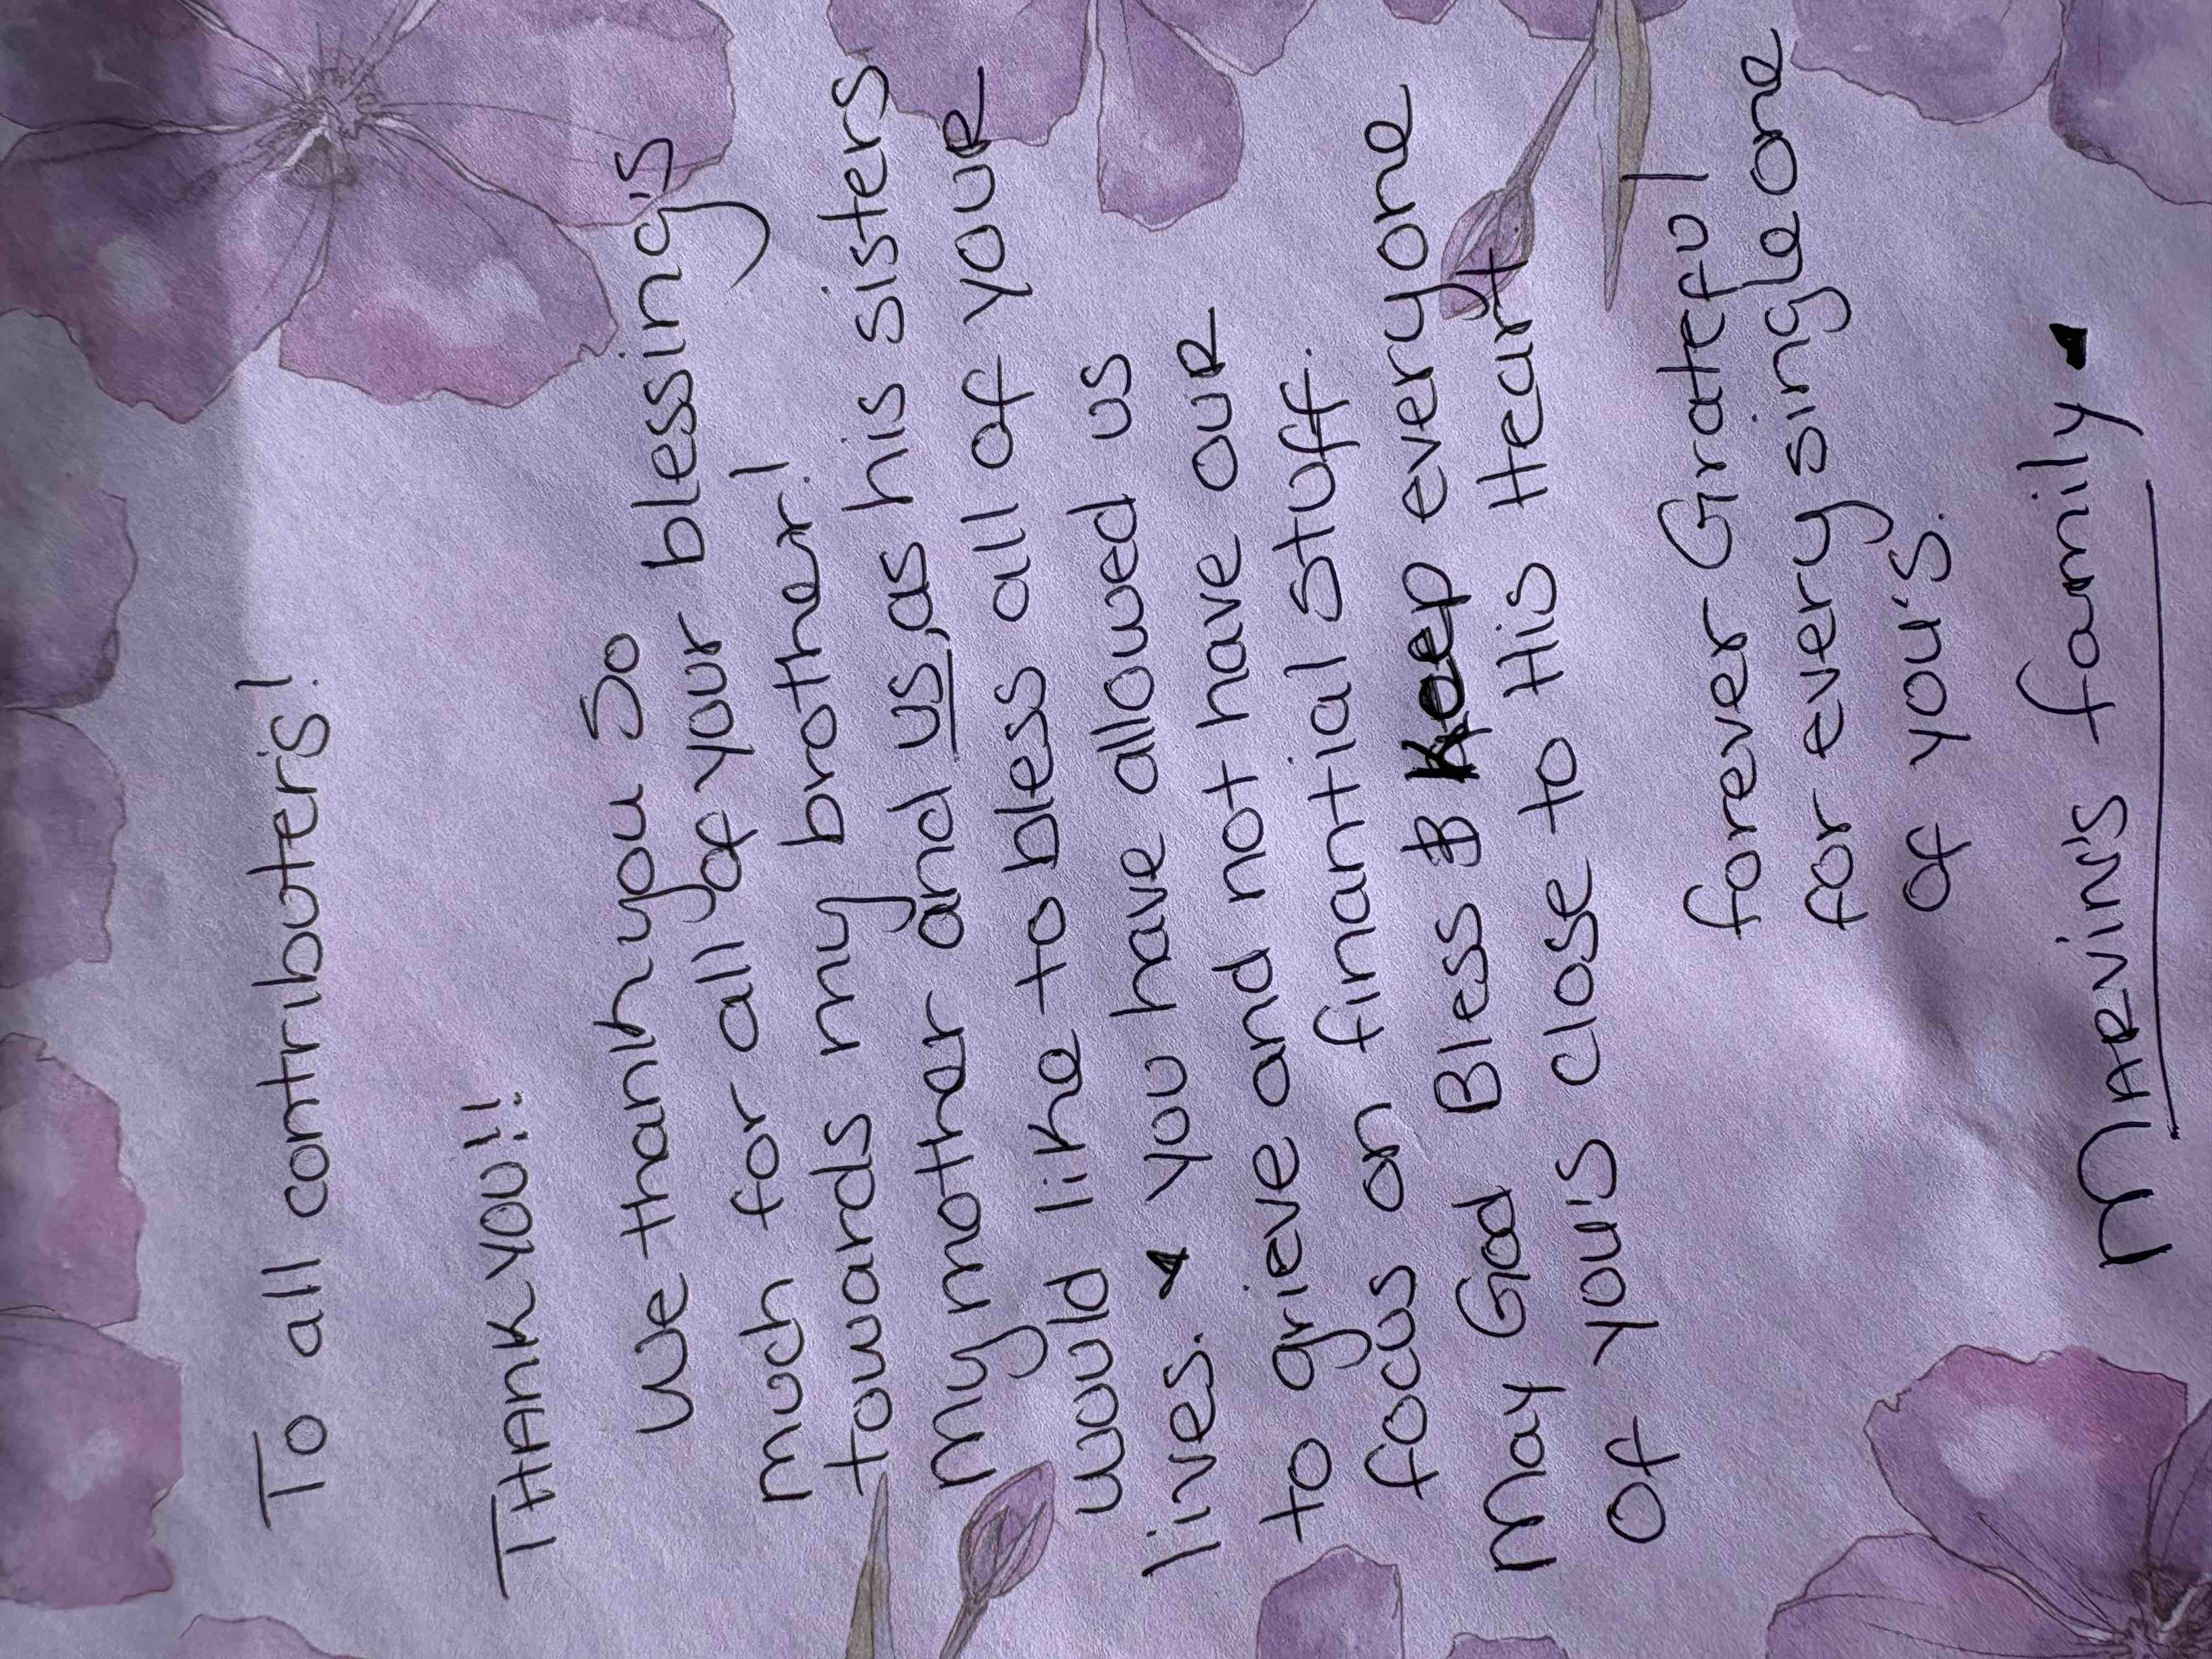 To all contributer's!
THANK YOU!!
We thank you So
much for all of your blessing's
towards my brother!
My mother and us, as his sisters
would like to bless all of your
lives. you have allowed us
to grieve and not have our
focus on finantial stuff.
May God Bless & Keep everyone
of you's close to His Heart
forever Grateful
for every single one
of you's.
MARVIN'S family.